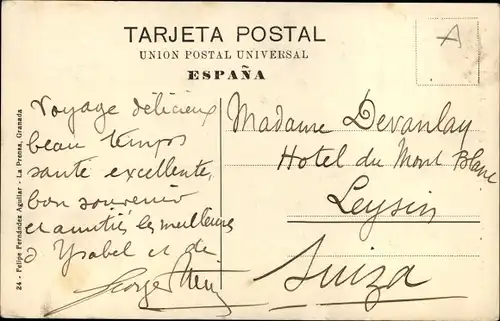 TARJETA POSTAL
UNION POSTAL UNIVERSAL
ESPAÑA
A
Voyage délicieux
beau temps
santé excellente,
bon souvenir
et amitiés les meilleures
d'Ysabel et de
George
Madame Devanlay
Hotel du Mont Blanc
Leysin
Suiza
24 - Felipe Fernández Aguilar - La Prensa, Granada